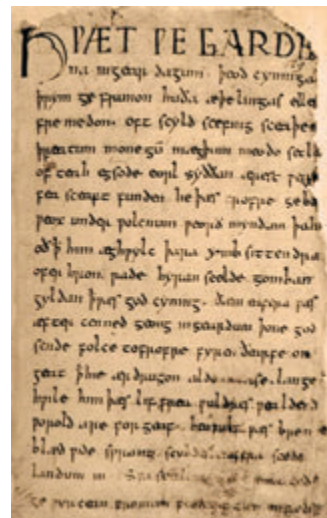 HǷÆT ǷE GARDE
na ingear dagum. þeod cyninga
þrym ge frunon huða æþelingas ellen
fre medon. oft scyld scefing sceaþen
þreatum monegū mægþum meodo setla
of teah egsode eorl syððan ærest ƿearð
fea sceaft funden he þæs frofre geba
ƿeox under ƿolcnum ƿeorð myndum þah
oð þ him æghƿylc þara ymb sittendra
ofer hron rade hyran scolde gomban
gyldan þ ƿæs god cyning. ðæm eafera ƿæs
æfter cenned geong ingeardum þone god
sende folce tofrofre fyren ðearfe on
geat þ hie ær drugon aldor ase. lange
hƿile him þæs lif frea ƿuldres ƿealdend
ƿorold are for geaf. beoƿulf ƿæs breme
blæd ƿide sprang scyldes eafera scede
landum in
ge ƿyrcean fromum feoh giftum